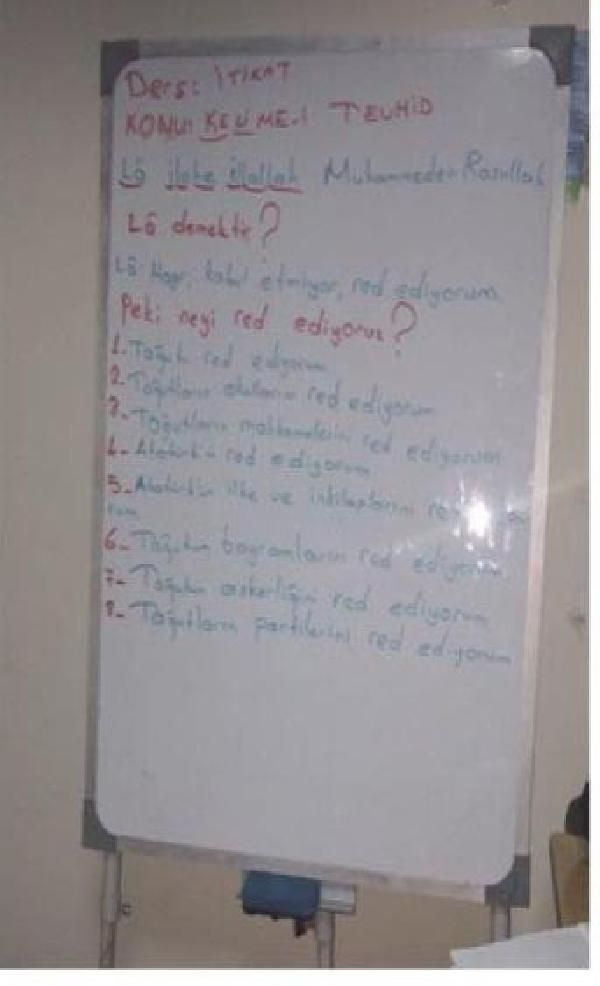 Ders: İTİKAT
KONU: KELİME-İ TEVHİD
Lâ ilahe illallah Muhammeden Rasullah
Lâ demektir?
Lâ Hayır, kabul etmiyor, red ediyorum
Peki neyi red ediyoruz?
1- Tağutu red ediyorum
2- Tağutların okullarını red ediyorum
3- Tağutların mahkemelerini red ediyorum
4- Atatürk'ü red ediyorum
5- Atatürk'ün ilke ve inkilaplarını
rum
6- Tağutun bayramlarını red ediyorum
7- Tağutun askerliğini red ediyorum
8- Tağutların partilerini red ediyorum